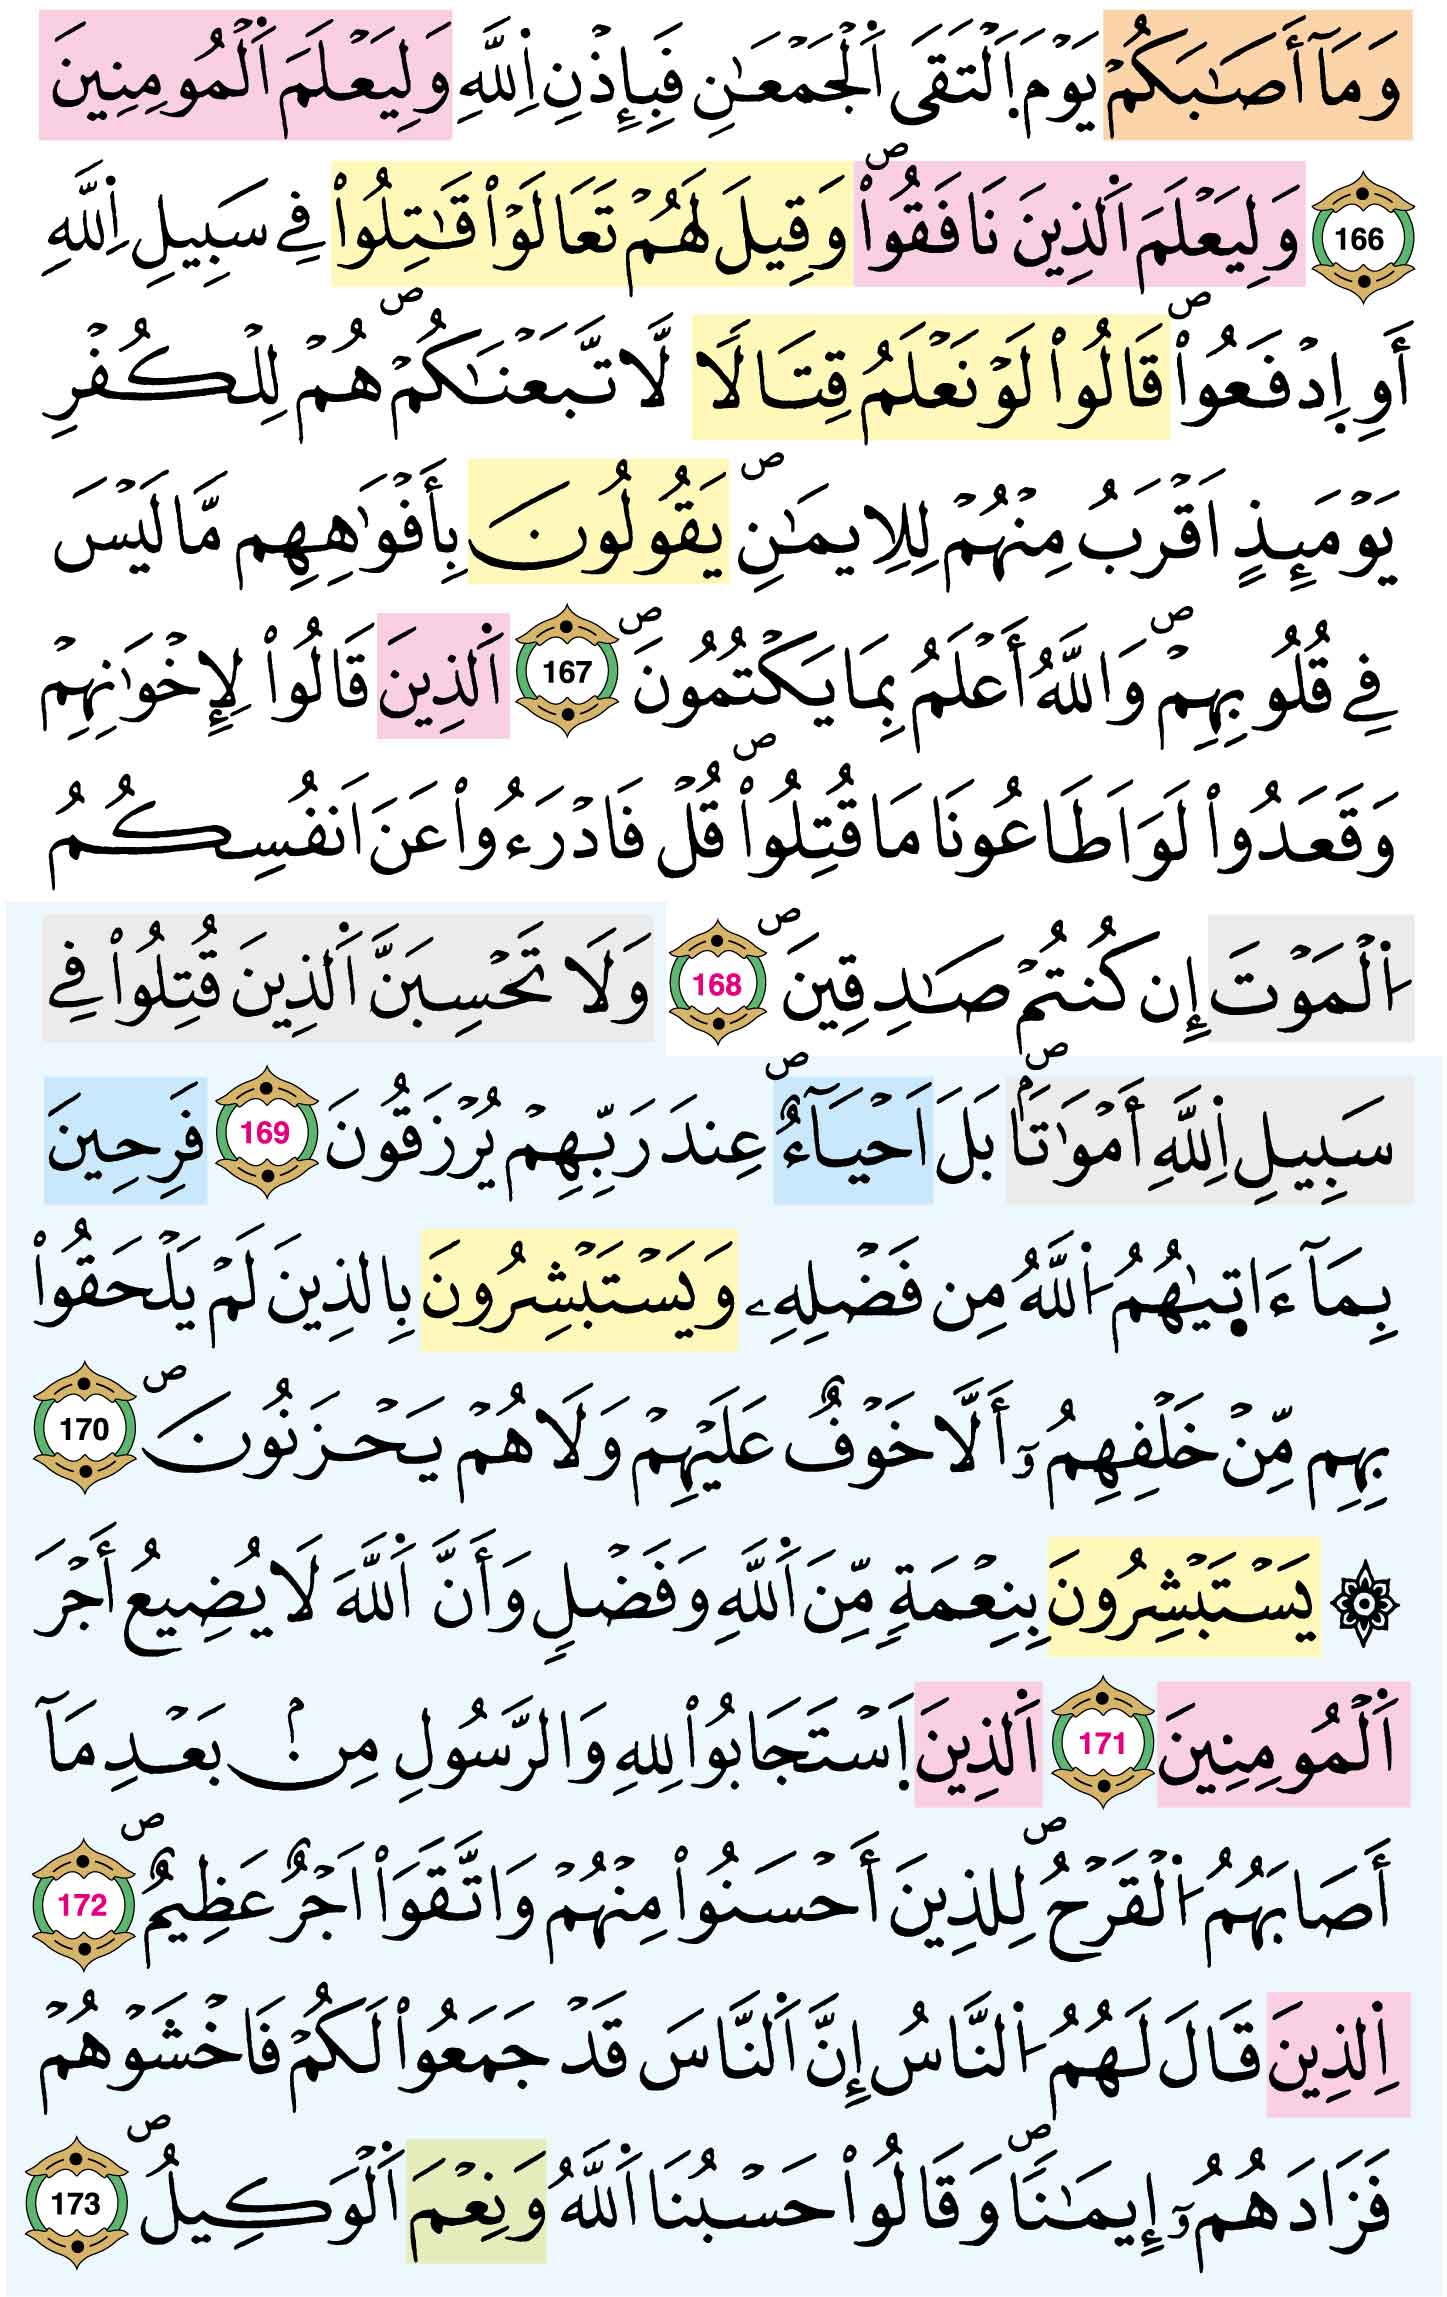 وَمَآ أَصَٰبَكُمْ يَوْمَ اَ۪لْتَقَى اَ۬لْجَمْعَٰنِ فَبِإِذْنِ اِ۬للَّهِ وَلِيَعْلَمَ اَ۬لْمُومِنِينَ
166 وَلِيَعْلَمَ اَ۬لذِينَ نَافَقُواْۖ وَقِيلَ لَهُمْ تَعَالَوْاْ قَٰتِلُواْ فِے سَبِيلِ اِ۬للَّهِ
أَوِ اِ۪دْفَعُواْۖ قَالُواْ لَوْ نَعْلَمُ قِتَالاٗ لَّاتَّبَعْنَٰكُمْۖ هُمْ لِلْكُفْرِ
يَوْمَئِذٍ اَقْرَبُ مِنْهُمْ لِلِايمَٰنِۖ يَقُولُونَ بِأَفْوَٰهِهِم مَّا لَيْسَ
فِے قُلُوبِهِمْۖ وَاللَّهُ أَعْلَمُ بِمَا يَكْتُمُونَۖ 167 اَ۬لذِينَ قَالُواْ لِإِخْوَٰنِهِمْ
وَقَعَدُواْ لَوَ اَطَاعُونَا مَا قُتِلُواْۖ قُلْ فَادْرَءُواْ عَنَ اَنفُسِكُمُ
اُ۬لْمَوْتَ إِن كُنتُمْ صَٰدِقِينَۖ 168 وَلَا تَحْسِبَنَّ اَ۬لذِينَ قُتِلُواْ فِے
سَبِيلِ اِ۬للَّهِ أَمْوَٰتاَۢۖ بَلَ اَحْيَآءٌۖ عِندَ رَبِّهِمْ يُرْزَقُونَ 169 فَرِحِينَ
بِمَآ ءَات۪يٰهُمُ اُ۬للَّهُ مِن فَضْلِهِۦ وَيَسْتَبْشِرُونَ بِالذِينَ لَمْ يَلْحَقُواْ
بِهِم مِّنْ خَلْفِهِمُۥٓ أَلَّا خَوْفٌ عَلَيْهِمْ وَلَا هُمْ يَحْزَنُونَۖ 170
۞ يَسْتَبْشِرُونَ بِنِعْمَةٖ مِّنَ اَ۬للَّهِ وَفَضْلٖ وَأَنَّ اَ۬للَّهَ لَا يُضِيعُ أَجْرَ
اَ۬لْمُومِنِينَ 171 اَ۬لذِينَ اَ۪سْتَجَابُواْ لِلهِ وَالرَّسُولِ مِنۢ بَعْدِ مَآ
أَصَابَهُمُ اُ۬لْقَرْحُۖ لِلذِينَ أَحْسَنُواْ مِنْهُمْ وَاتَّقَوَاْ اَجْرٌ عَظِيمٌۖ 172
اِ۬لذِينَ قَالَ لَهُمُ اُ۬لنَّاسُ إِنَّ اَ۬لنَّاسَ قَدْ جَمَعُواْ لَكُمْ فَاخْشَوْهُمْ
فَزَادَهُمُۥٓ إِيمَٰناٗۖ وَقَالُواْ حَسْبُنَا اَ۬للَّهُ وَنِعْمَ اَ۬لْوَكِيلُۖ 173